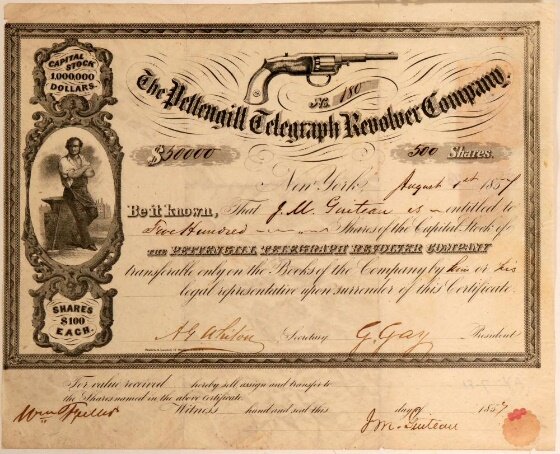 CAPITAL
STOCK
1,000,000
DOLLARS.
No. 180
The Pettengill Telegraph Revolver Company.
$50000
500 Shares.
New York, August 1st 1857
Be it known, That J. M. Guiteau is entitled to
Five Hundred Shares of the Capital Stock of
THE PETTENGILL TELEGRAPH REVOLVER COMPANY
transferable only on the Books of the Company by him or his
legal representative upon surrender of this Certificate.
SHARES
$100
EACH.
Secretary
G. Gay President
For value received hereby sell assign and transfer to
the Shares named in the above certificate.
Witness hand and seal this day of 1857
J M. Guiteau